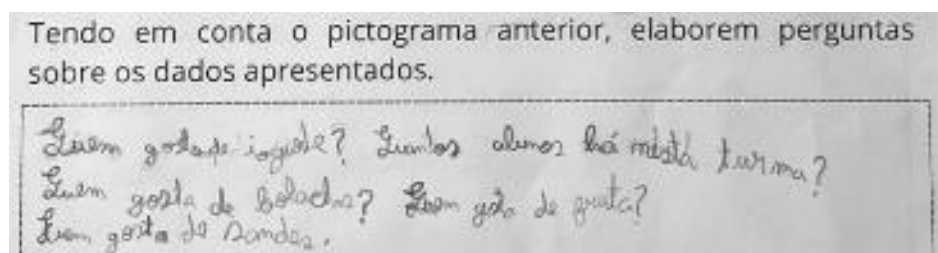 Tendo em conta o pictograma anterior, elaborem perguntas
sobre os dados apresentados.
Quem gosta de iogurte? Quantos alunos há nésta turma?
Quem gosta de bolachas? Quem gosta de fruta?
Quem gosta de sandes.